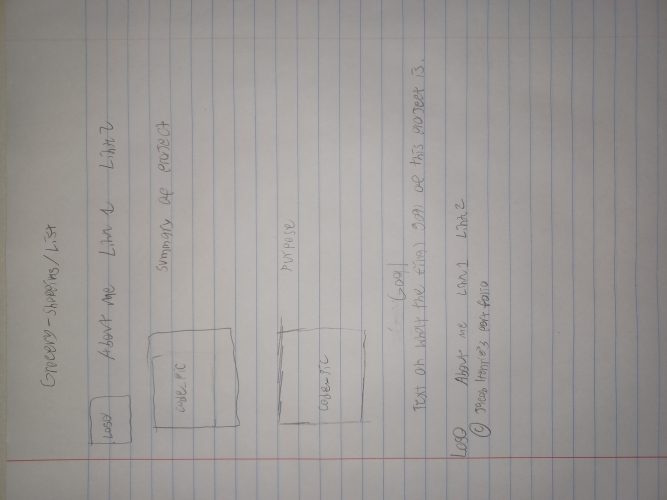 Grocery-Shopping/List
Logo About me Link 1 Link 2
Code_Pic Summary of project
Code_Pic Purpose
Goal
Text on what the final goal of this project is.
Logo About me Link 1 Link 2
© Jacob portfolio